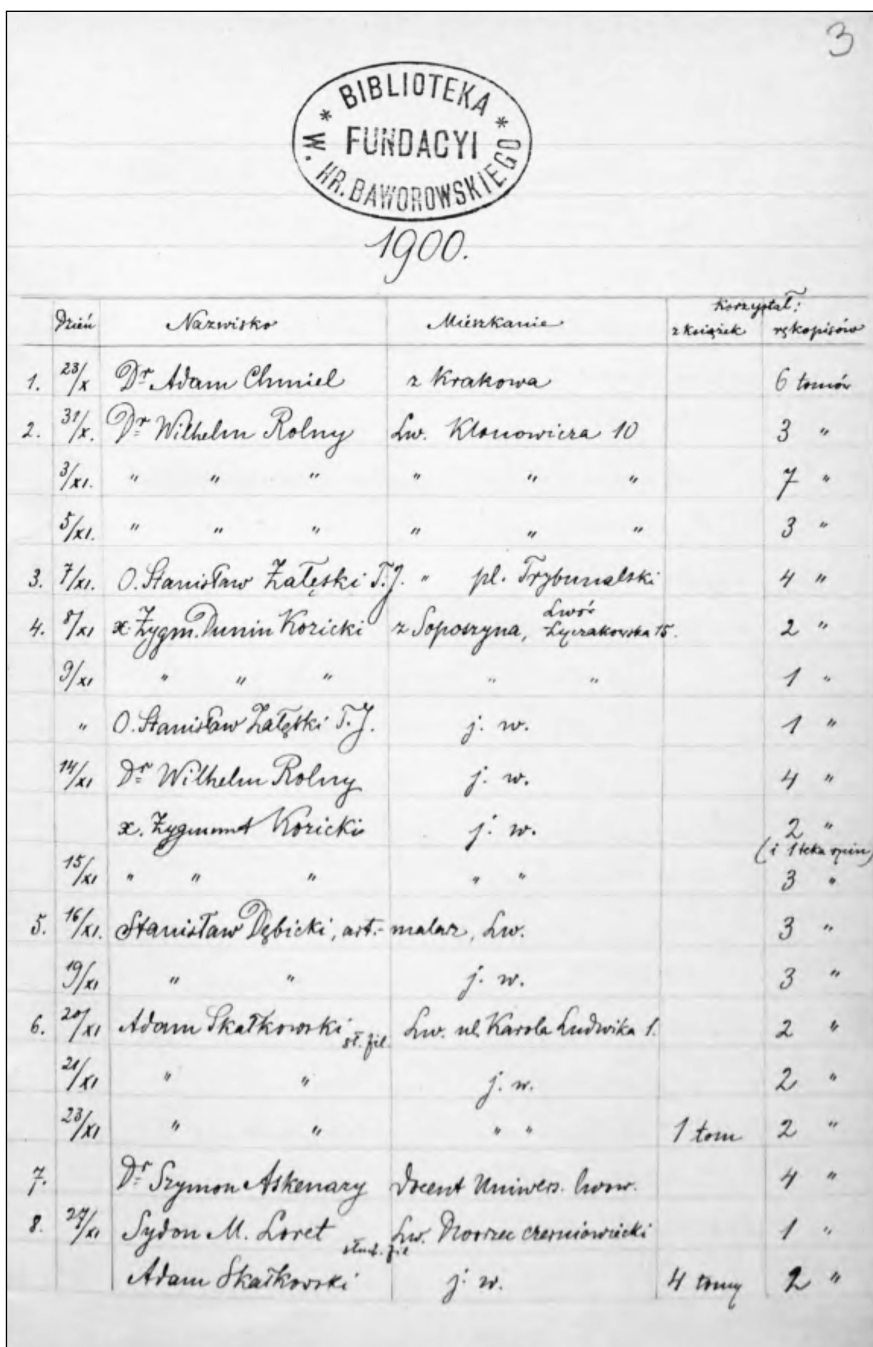 3
* BIBLIOTEKA *
FUNDACYI
W. HR. BAWOROWSKIEGO
1900.
Korzystał:
Dzień Nazwisko Mieszkanie z książek rękopisów
1. 23/X Dr Adam Chmiel z Krakowa 6 tomów
2. 31/X. Dr Wilhelm Rolny Lw. Klonowicza 10 3 "
3/XI. " " " " " " 7 "
5/XI. " " " " " " 3 "
3. 7/XI. O. Stanisław Załęski T.J. " pl. Trybunalski 4 "
4. 8/XI x. Zygm. Dunin Kozicki z Soposzyna, Lwów Łyczakowska 15. 2 "
9/XI " " " " " 1 "
" O. Stanisław Załęski T.J. j. w. 1 "
14/XI Dr Wilhelm Rolny j. w. 4 "
x. Zygmunt Kozicki j. w. 2 "
(i 1 teka)
15/XI " " " " " 3 "
5. 16/XI. Stanisław Dębicki, art.-malarz, Lw. 3 "
19/XI " " j. w. 3 "
6. 20/XI Adam Skałkowski sł. fil. Lw. ul. Karola Ludwika 1. 2 "
21/XI " " j. w. 2 "
23/XI " " " " 1 tom 2 "
7. Dr Szymon Askenazy docent Uniwers. lwow. 4 "
8. 27/XI Sydon M. Loret stud. fil Lw. Dworzec czerniowiecki 1 "
Adam Skałkowski j. w. 4 tomy 2 "